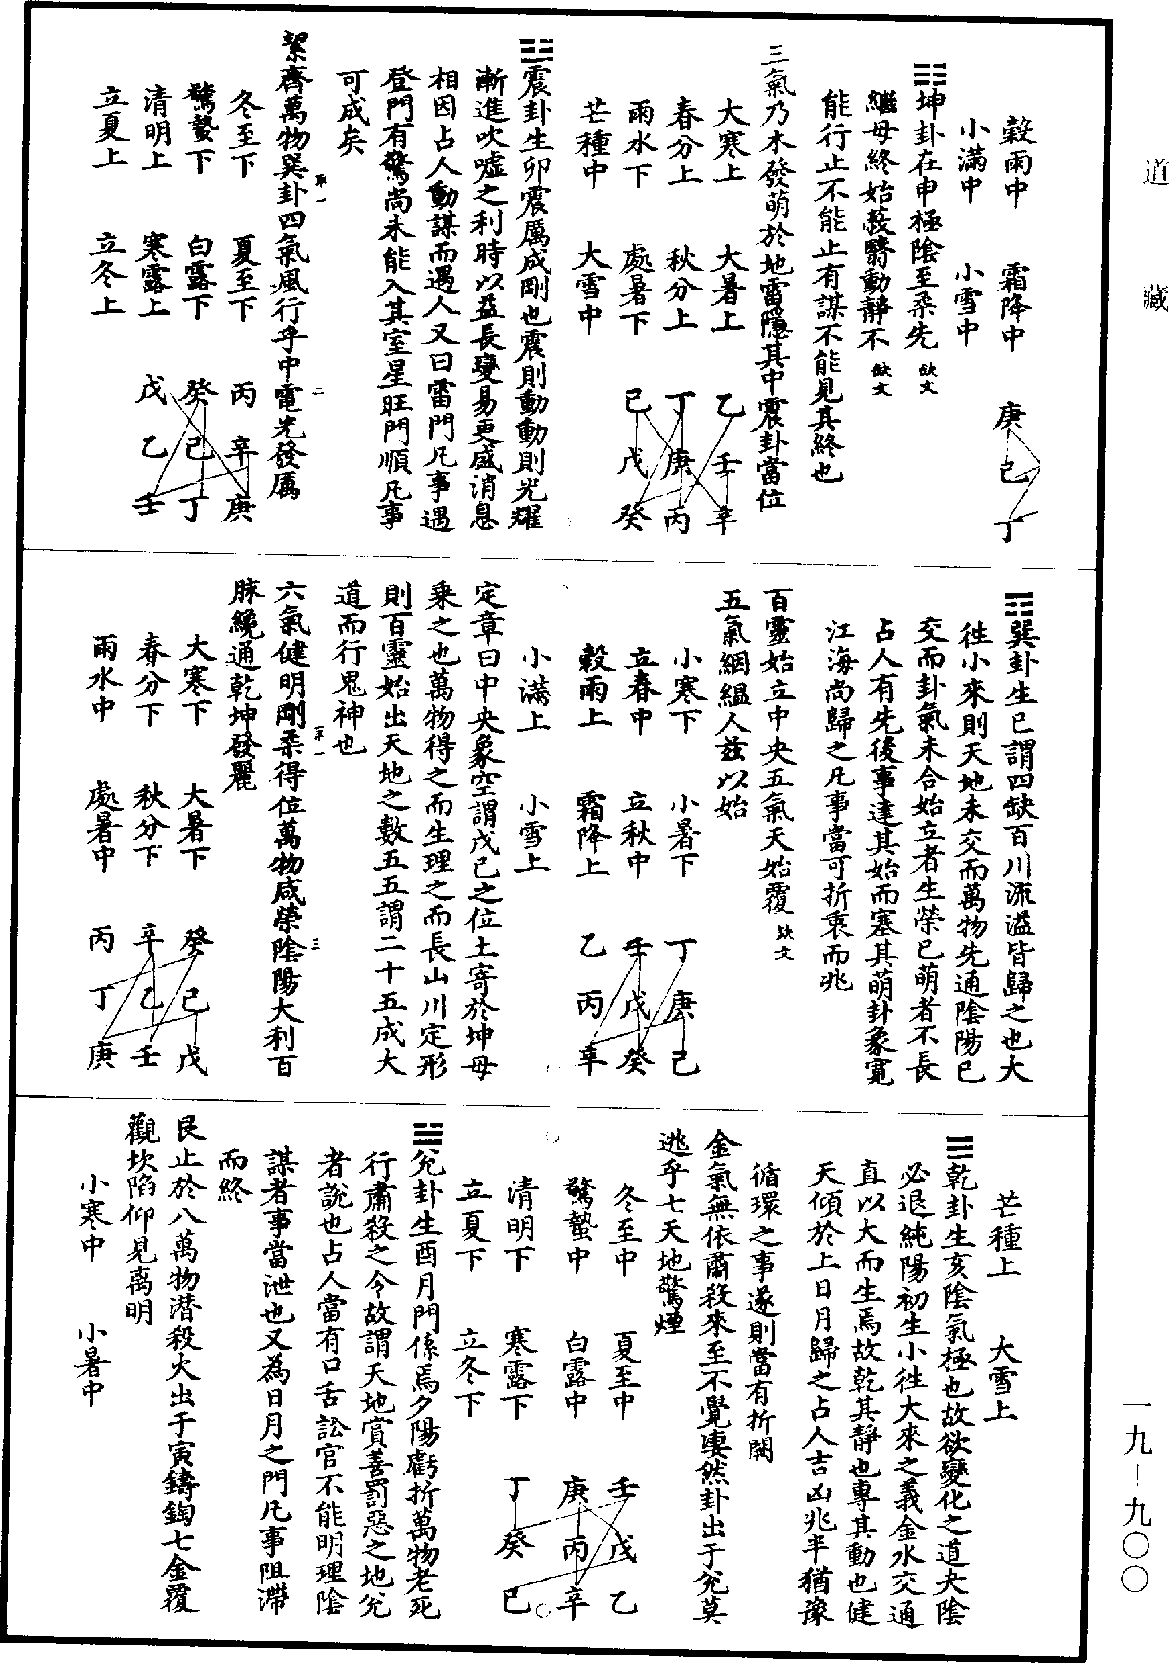 道藏
穀雨中　霜降中　庚己丁
小滿中　小雪中
䷁坤卦在申極陰至柔先缺文
繼母終始蓛翳動靜不缺文
能行止不能止有謀不能見其終也
三氣乃木發萌於地雷隱其中震卦當位
大寒上　大暑上　乙壬辛
春分上　秋分上　丁庚丙
雨水下　處暑下　己戊癸
芒種中　大雪中
䷲震卦生卯震厲成剛也震則動動則光耀
漸進吹噓之利時以益長變易更盛消息
相因占人動謀而遇人又曰雷門凡事遇
登門有驚尚未能入其室星旺門順凡事
可成矣
絜齊萬物巽卦四氣風行乎中電光發厲
第一　二
冬至下　夏至下　丙辛庚
驚蟄下　白露下　癸己丁
清明上　寒露上　戊乙壬
立夏上　立冬上
䷸巽卦生巳謂四缺百川流溢皆歸之也大
往小來則天地未交而萬物先通陰陽已
交而卦氣未合始立者生榮已萌者不長
占人有先後事達其始而塞其萌卦象寬
江海尚歸之凡事當可折衷而兆
百靈始立中央五氣天始覆缺文
五氣絪縕人茲以始
小寒下　小暑下　丁庚己
立春中　立秋中　壬戊癸
穀雨上　霜降上　乙丙辛
小滿上　小雪上
定章曰中央象空謂戊己之位土寄於坤母
乘之也萬物得之而生理之而長山川定形
則百靈始出天地之數五五謂二十五成大
道而行鬼神也
六氣健明剛柔得位萬物咸榮陰陽大利百
第一　三
脉纔通乾坤發麗
大寒下　大暑下　癸己戊
春分下　秋分下　辛乙壬
雨水中　處暑中　丙丁庚
芒種上　大雪上
䷀乾卦生亥陰氣極也故欲變化之道夫陰
必退純陽初生小往大來之義金水交通
直以大而生焉故乾其靜也專其動也健
天傾於上日月歸之占人吉凶兆半猶豫
循環之事遂則當有折闕
金氣無依肅殺來至不覺悽然卦出于兌莫
逃乎七天地驚煙
冬至中　夏至中　壬戊乙
驚蟄中　白露中　庚丙辛
清明下　寒露下　丁癸己
立夏下　立冬下
䷹兌卦生酉月門係焉夕陽虧折萬物老死
行肅殺之令故謂天地賞善罰惡之地兌
者說也占人當有口舌訟官不能明理陰
謀者事當泄也又為日月之門凡事阻滯
而終
艮止於八萬物潜殺火出于寅鑄鍧七金覆
觀坎陷仰見离明
小寒中　小暑中
一九—九〇〇